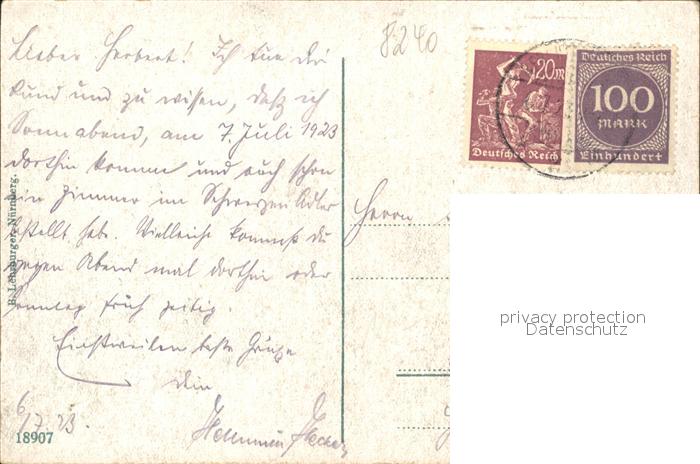 Lieber Herbert! Ich tue Dir
kund und zu wissen, daß ich
Sonnabend, am 7. Juli 1923
dorthin komme und auch schon
ein Zimmer im Schwarzen Adler
bestellt habe. Vielleicht kommst du
gegen Abend mal dorthin oder
Sonntag früh zeitig.
Einstweilen beste Grüße
Dein
6/7.23.
18907
8240
20m
Deutsches Reich
Deutsches Reich
100
MARK
Einhundert
Herrn
privacy protection
Datenschutz
Nürnberg.